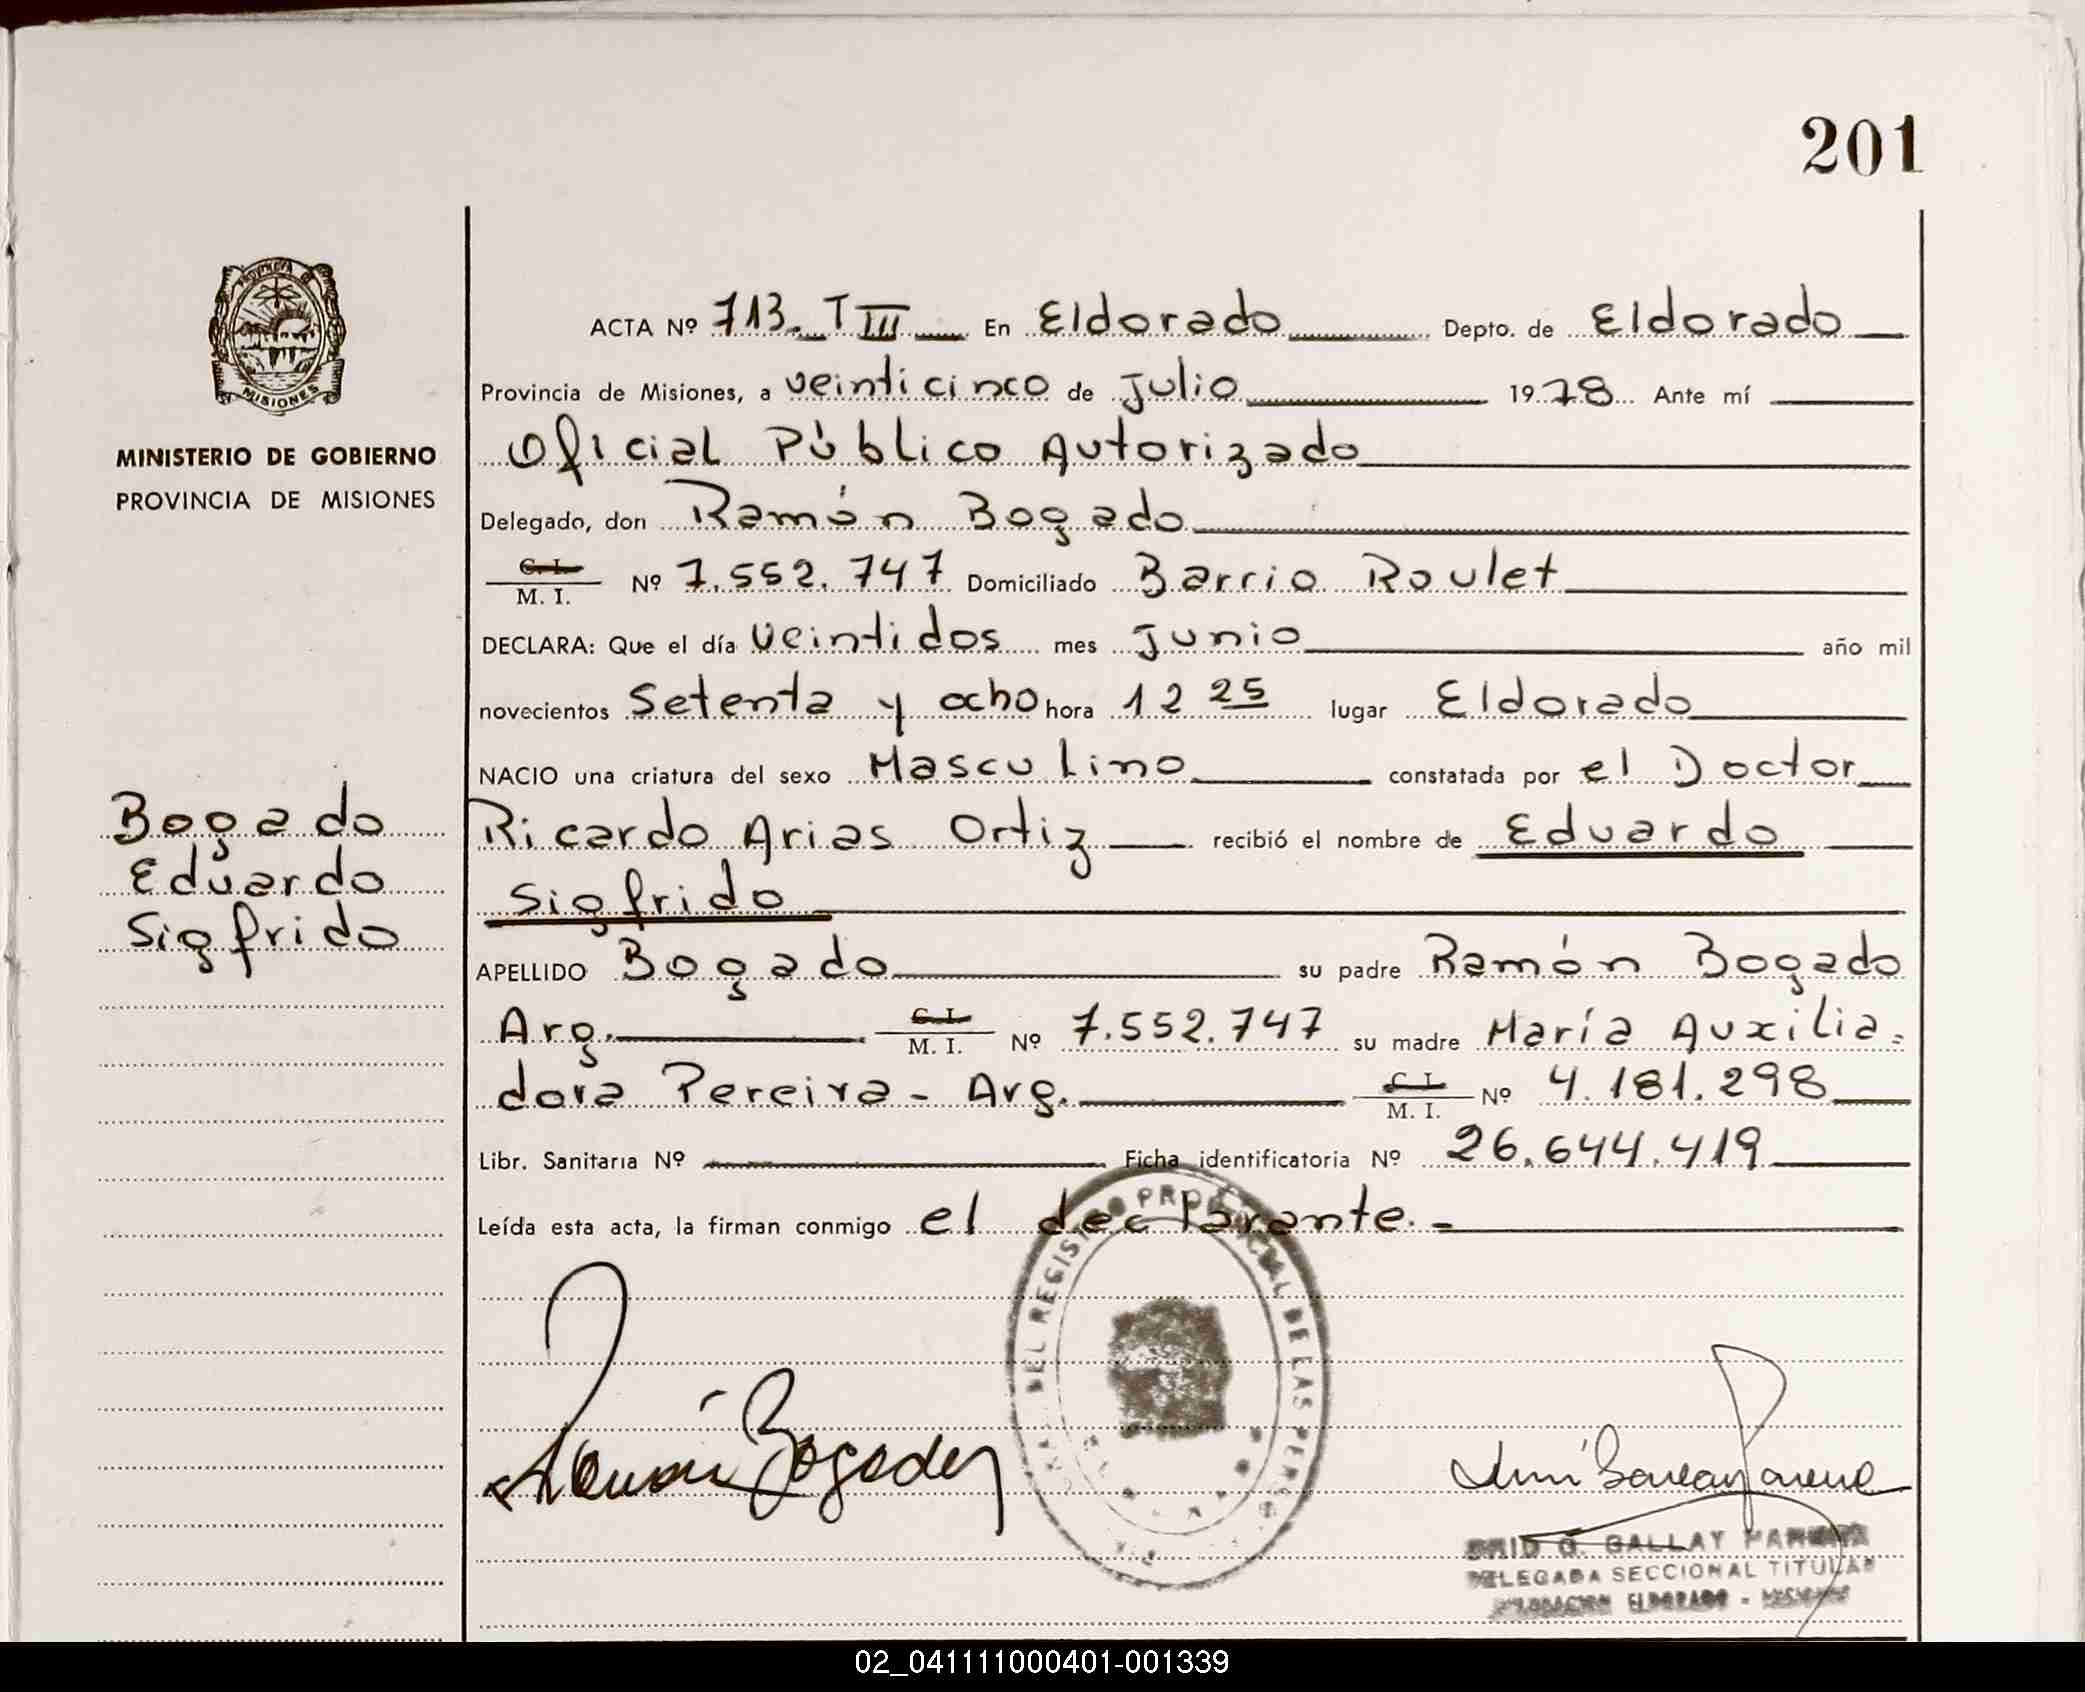 201
PROVINCIA DE
MISIONES
MINISTERIO DE GOBIERNO
PROVINCIA DE MISIONES
Bogado
Eduardo
Sigfrido
ACTA Nº 713. T III En Eldorado Depto. de Eldorado
Provincia de Misiones, a veinticinco de Julio 1978 Ante mí
Oficial Público Autorizado
Delegado, don Ramón Bogado
C. I.
M. I. Nº 7.552.747 Domiciliado Barrio Roulet
DECLARA: Que el día veintidos mes Junio año mil
novecientos Setenta y ocho hora 12 25 lugar Eldorado
NACIO una criatura del sexo Masculino constatada por el Doctor
Ricardo Arias Ortiz recibió el nombre de Eduardo
Sigfrido
APELLIDO Bogado su padre Ramón Bogado
Arg. C. I.
M. I. Nº 7.552.747 su madre María Auxilia=
dora Pereira - Arg. C. I.
M. I. Nº 4.181.298
Libr. Sanitaria Nº Ficha identificatoria Nº 26.644.419
Leída esta acta, la firman conmigo el declarante. -
DEL REGISTRO PROVINCIAL DE LAS PERS
Ramón Bogado
G. GALLAY
DELEGADA SECCIONAL TITULAR
ELDORADO - MISIONES
02_041111000401-001339